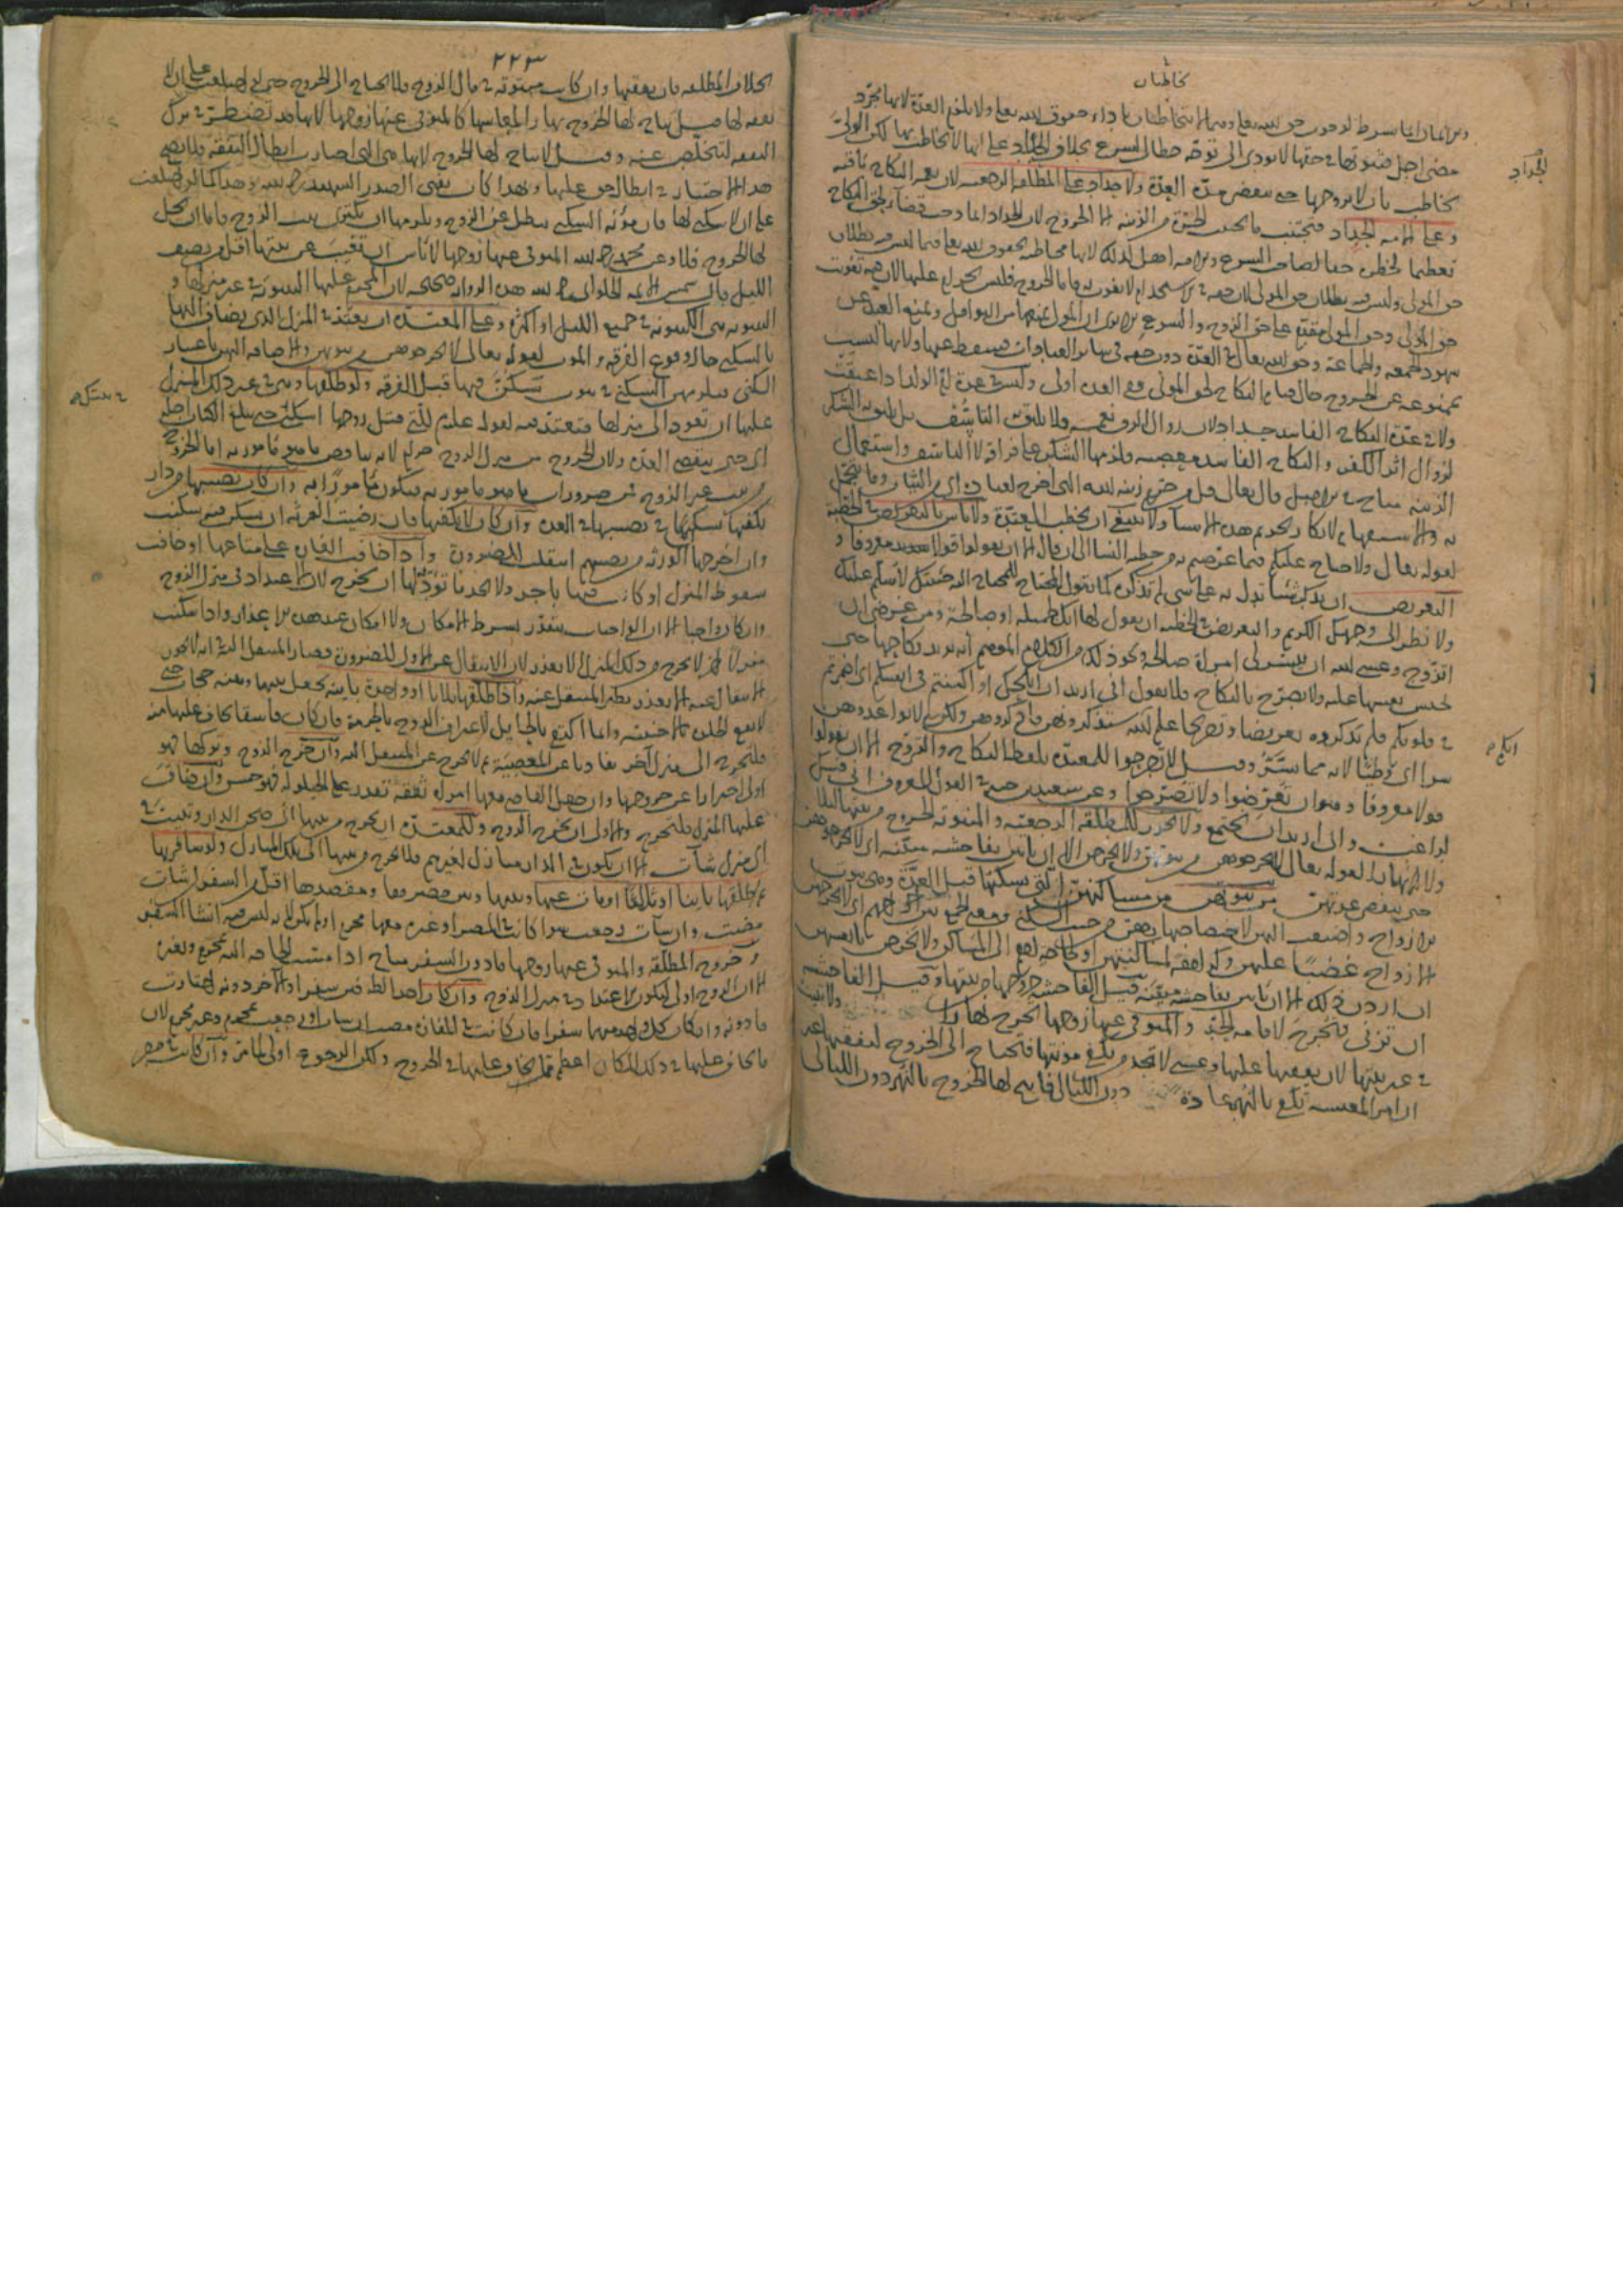 يخاطبان
والايمان انما يشترط لوجوب حق الله تعالى وهما لا يخاطبان باداء حقوق الله تعالى ولا يلزم العدة لانها مجرد
مضي اجل فثبوتها في حقها لا يودي الى توجه خطاب الشرع بخلاف الحداد على انها لا تخاطب بها لكن الولي
الحداد
يخاطب بان لا يزوجها حتى تنقضي مدة العدة ولا حداد على المطلقة الرجعية لان نعمة النكاح باقية
وعلى الامة الحداد فتجتنب ما تجتنب الحرة من الزينة الا الخروج لان الحداد انما وجب قضاء لحق النكاح
تعظيما لخطره حقا لصاحب الشرع والامة اهل لذلك لانها مخاطبة بحقوق الله تعالى فيما ليس فيه بطلان
حق المولى وليس فيه بطلان حق المولى لان حقه في الاستخدام لا يفوت به فاما الخروج فليس بحرام عليها لان فيه تفويت
حق المولى وحق المولى مقدم على حق الزوج والشرع الا يرى ان المولى يمنعها من النوافل ويمنع العبد عن
شهود الجمعة والجماعة وحق الله تعالى في العدة دون حقه في سائر العبادات فيسقط عنها ولانها ليست
بممنوعة عن الخروج حال قيام النكاح لحق المولى ففي العدة اولى وليس في عدة ام الولد اذا عتقت
ولا في عدة النكاح الفاسد حداد لان زوال الرق نعمة فلا يليق به التاسف بل يليق به الشكر
لزوال اثر الكفر والنكاح الفاسد معصية فلزمها الشكر على فراقه لا التاسف واستعمال
الزينة مباح في الاصل قال تعالى قل من حرم زينة الله التي اخرج لعباده اي من الثياب وما يتجمل
به والاستفهام لانكار تحريم هذه الاشياء ولا ينبغي ان تخطب المعتدة ولا باس بالتعريض في الخطبة
لقوله تعالى ولا جناح عليكم فيما عرضتم به من خطبة النساء الى ان قال الا ان تقولوا قولا معروفا و
التعريض ان يذكر شيئا يدل به على شي لم يذكره كما يقول المحتاج للمحتاج اليه جئتك لاسلم عليك
ولانظر الى وجهك الكريم والتعريض في الخطبة ان يقول لها انك لجميلة او صالحة ومن غرضي ان
اتزوج وعسى الله ان ييسر لي امراة صالحة ونحو ذلك من الكلام الموهم انه يريد نكاحها حتى
تحبس نفسها عليه ولا يصرح بالنكاح فلا يقول اني اريد ان انكحك او اكننتم في انفسكم اي اضمرتم
في قلوبكم فلم تذكروه تعريضا وتصريحا علم الله ستذكرونهن فاذكروهن ولكن لا تواعدوهن
انكم
سرا اي وطئا لانه مما يستر وقيل لا تصرحوا للمعتدة بلفظ النكاح والتزوج الا ان تقولوا
قولا معروفا وهو ان تعرضوا ولا تصرحوا وعن سعيد بن جبير في القول المعروف اني فيك
لراغب واني اريد ان نجتمع ولا يجوز للمطلقة الرجعية والمبتوتة الخروج من بيتها ليلا
ولا نهارا لقوله تعالى لا تخرجوهن من بيوتهن ولا يخرجن الا ان ياتين بفاحشة مبينة اي لا تخرجوهن
حتى تنقضي عدتهن من بيوتهن من مساكنهن التي يسكنها قبل العدة وهي بيوت
الازواج واضيفت اليهن لاختصاصها بهن من حيث السكنى ومعنى الجمع بين اخراجهم اي لا تخرجوهن
الازواج غضبا عليهن وكراهة لمساكنتهن او لحاجة لهم الى المساكن ولا يخرجن بانفسهن
ان اردن ذلك الا ان ياتين بفاحشة مبينة قيل الفاحشة خروجها من بيتها وقيل الفاحشة
ان تزني فتخرج لاقامة الحد والمتوفى عنها زوجها تخرج نهارا ولا تبيت
في غير بيتها لان نفقتها عليها وعسى لا تجد من يكفي مؤنتها فتحتاج الى الخروج لنفقتها غير
ان امر المعيشة يكون بالنهار عادة دون الليالي فابيح لها الخروج بالنهر دون الليالي
٢٢٣
بخلاف المطلقة فان نفقتها وان كانت مبتوتة في مال الزوج فلا تحتاج الى الخروج حتى لو اختلعت على ان لا
نفقة لها قيل يباح لها الخروج نهارا لمعاشها كالمتوفى عنها زوجها لانها قد تضطر في ترك
النفقة لتتخلص عنه وقيل لا يباح لها الخروج لانها هي التي اختارت ابطال النفقة فلا يصح
هذا الاختيار في ابطال حق عليها وبهذا كان يفتي الصدر الشهيد رحمه الله وهذا كما لو اختلعت
على ان لا سكنى لها فان مؤنة السكنى تبطل عن الزوج ويلزمها ان تكتري بيت الزوج فاما ان يحل
لها الخروج فلا وعن محمد رحمه الله المتوفى عنها زوجها لا باس ان تغيب عن بيتها اقل من نصف
الليل قال شمس الائمة الحلواني رحمه الله هذه الرواية صحيحة لان المحرم عليها البيتوتة في غير منزلها و
البيتوتة هي الكينونة في جميع الليل او اكثره وعلى المعتدة ان تعتد في المنزل الذي يضاف اليها
بالسكنى حال وقوع الفرقة والموت لقوله تعالى لا تخرجوهن من بيوتهن والاضافة اليهن باعتبار
السكنى فبيوتهن السكنى في بيوت تسكن فيها قبل الفرقة ولو طلقها وهي في غير ذلك المنزل
في مسكنه
عليها ان تعود الى منزلها فتعتد فيه لقوله عليه السلام للتي قتل زوجها اسكني حتى يبلغ الكتاب اجله
اي حتى تنقضي العدة ولان الخروج من منزل الزوج حرام
من بيت غير الزوج من ضرورات ما هو مامور به فيكون مامورا به وان كان نصيبها من دار
يكفيها سكنتها في نصيبها في العدة وان كان لا يكفيها فان رضيت الورثة ان تسكن فيه سكنت
وان اخرجها الورثة من نصيبهم انتقلت للضرورة واذا خافت الفوات على متاعها او خافت
سقوط المنزل او كانت فيها باجر ولا تجد ما تؤديه لها ان تخرج لان الاعتداد في منزل الزوج
وان كان واجبا الا ان الواجبات تتقدر بشرط الامكان ولا امكان عند هذه الاعذار واذا سكنت
منزلا اخر لا تخرج من ذلك المنزل الا بعذر لان الانتقال عن الاول للضرورة فصار المنتقل اليه
واذا طلقها ثلاثا او واحدة باينة يجعل بينها وبينه حجاب حتى
لا تقع الخلوة بالاجنبية وانما اكتفي بالحايل لاعتراف الزوج بالحرمة فان كان فاسقا يخاف عليها منه
فلتخرج الى منزل آخر تفاديا عن المعصية ثم لا تخرج عن المنتقل اليه وان خرج الزوج وتركها فهو
اولى احترازا عن خروجها وان جعل القاضي معها امراة ثقة تقدر على الحيلولة فهو حسن وان ضاق
عليها المنزل فلتخرج والاولى ان يخرج الزوج وللمعتدة ان تخرج من بيتها الى صحن الدار وتبيت في
اي منزل شاءت الا ان يكون في الدار منازل لغيرهم فلا تخرج من بيتها الى تلك المنازل ولو سافر بها
ثم طلقها باينا او ثلاثا او مات عنها وبينها وبين مصرها ومقصدها اقل من السفر ان شاءت
مضت وان شاءت رجعت سواء كانت في المصر او غيره معها محرم او لم يكن لانه ليس فيه انشاء السفر
وخروج المطلقة والمتوفى عنها زوجها ما دون السفر مباح اذا مست الحاجة اليه بمحرم وبغيره
الا ان الرجوع اولى ليكون الاعتداد في منزل الزوج وان كان احد الطرفين سفرا والاخر دونه اختارت
ما دونه وان كان كل واحد منهما سفرا فان كانت في المفازة مضت ان شاءت او رجعت بمحرم وغير محرم لان
ما يخاف عليها في ذلك المكان اعظم مما يخاف عليها في الخروج ولكن الرجوع اولى لما مر وان كانت في مصر